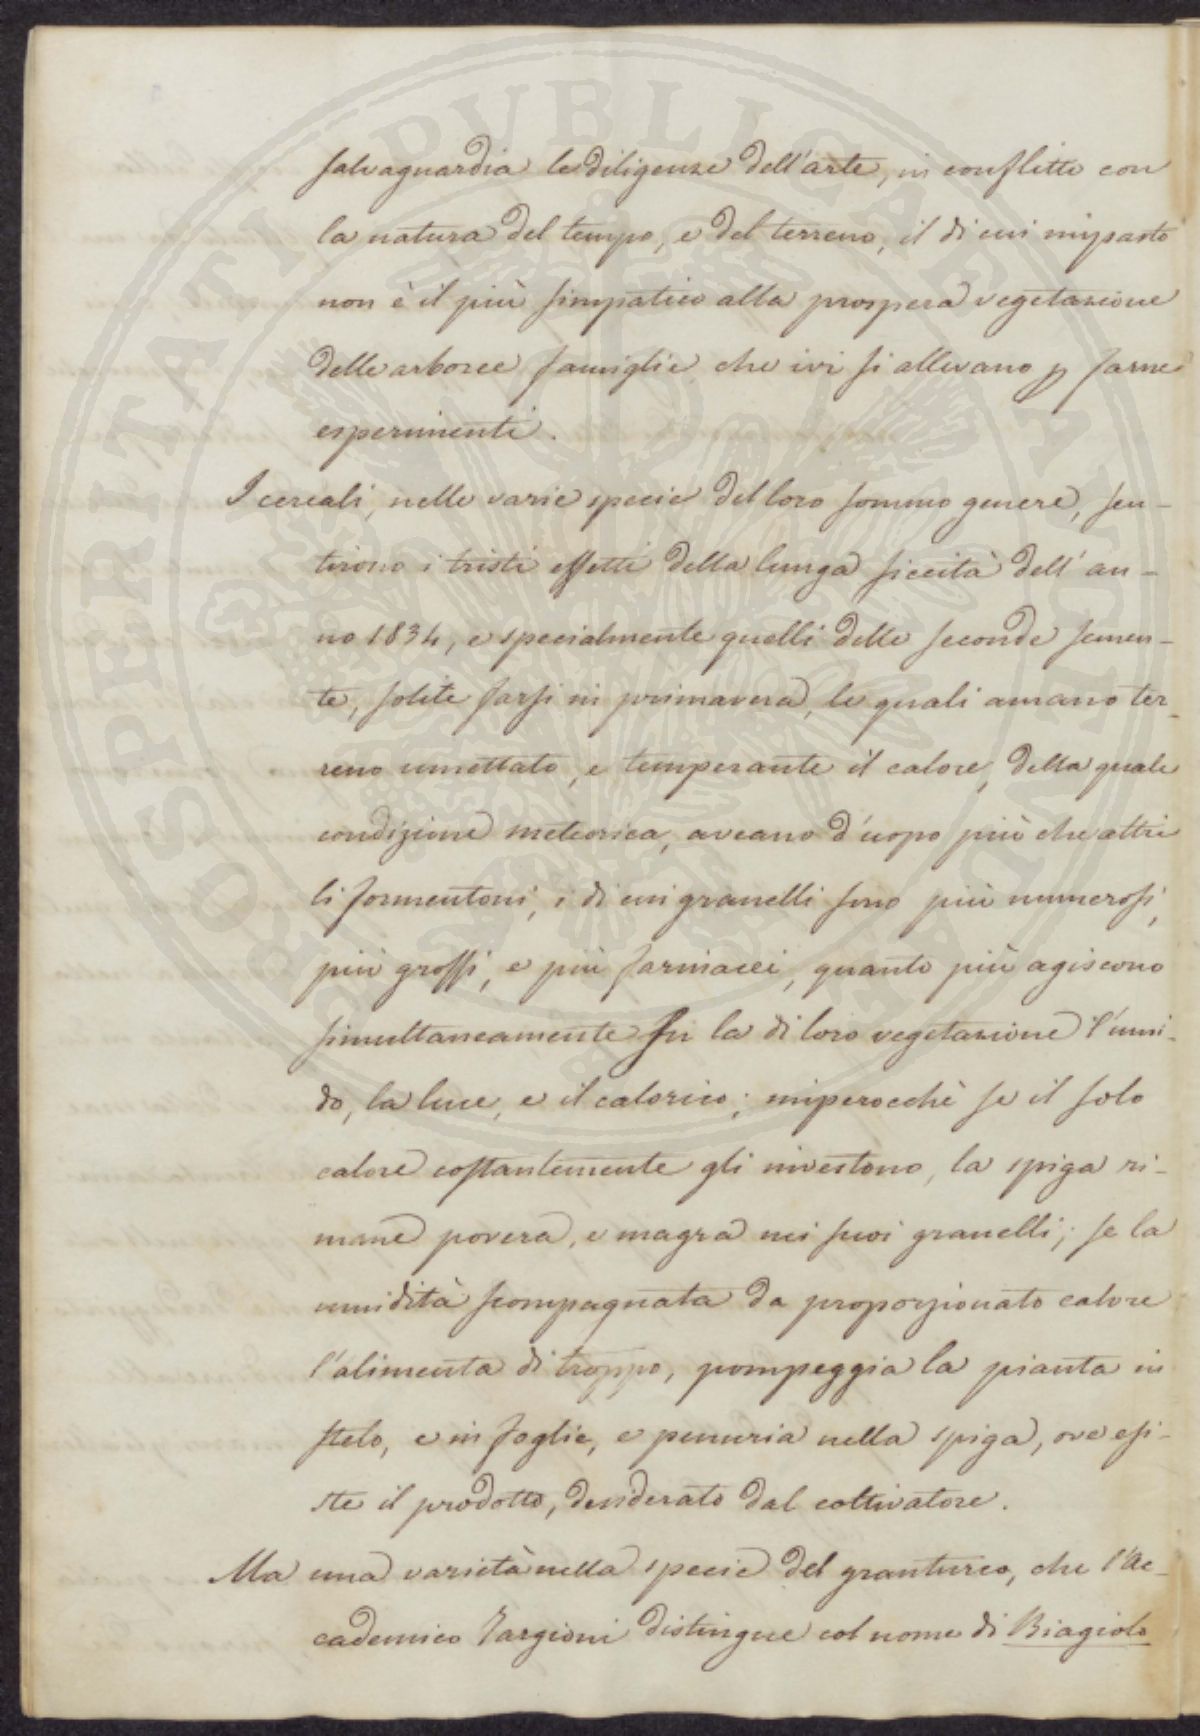 salvaguardia le diligenze dell'arte, in conflitto con
la natura del tempo, e del terreno, il di cui impasto
non è il più simpatico alla prospera vegetazione
delle arboree famiglie che ivi si allevano p farne
esperimenti.
I cereali, nelle varie specie del loro sommo genere, sen-
tirono i tristi effetti della lunga siccità dell'an-
no 1834, e specialmente quelli delle seconde semen-
te, solite farsi in primavera, le quali amano ter-
reno umettato, e temperante il calore, della quale
condizione meteorica, aveano d'uopo più che altri
li formentoni, i di cui granelli sono più numerosi,
più grossi, e più farinacei, quanto più agiscono
simultaneamente su la di loro vegetazione l'umi-
do, la luce, e il calorico; imperocchè se il solo
calore costantemente gli investono, la spiga ri-
mane povera, e magra nei suoi granelli; se la
umidità scompagnata da proporzionato calore
l'alimenta di troppo, pompeggia la pianta in
stelo, e in foglie, e penuria nella spiga, ove esi-
ste il prodotto, desiderato dal coltivatore.
Ma una varietà nella specie del granturco, che l'Ac-
cademico Targioni distingue col nome di Biagiolo
PROSPERITATI PUBLICAE AUGENDAE